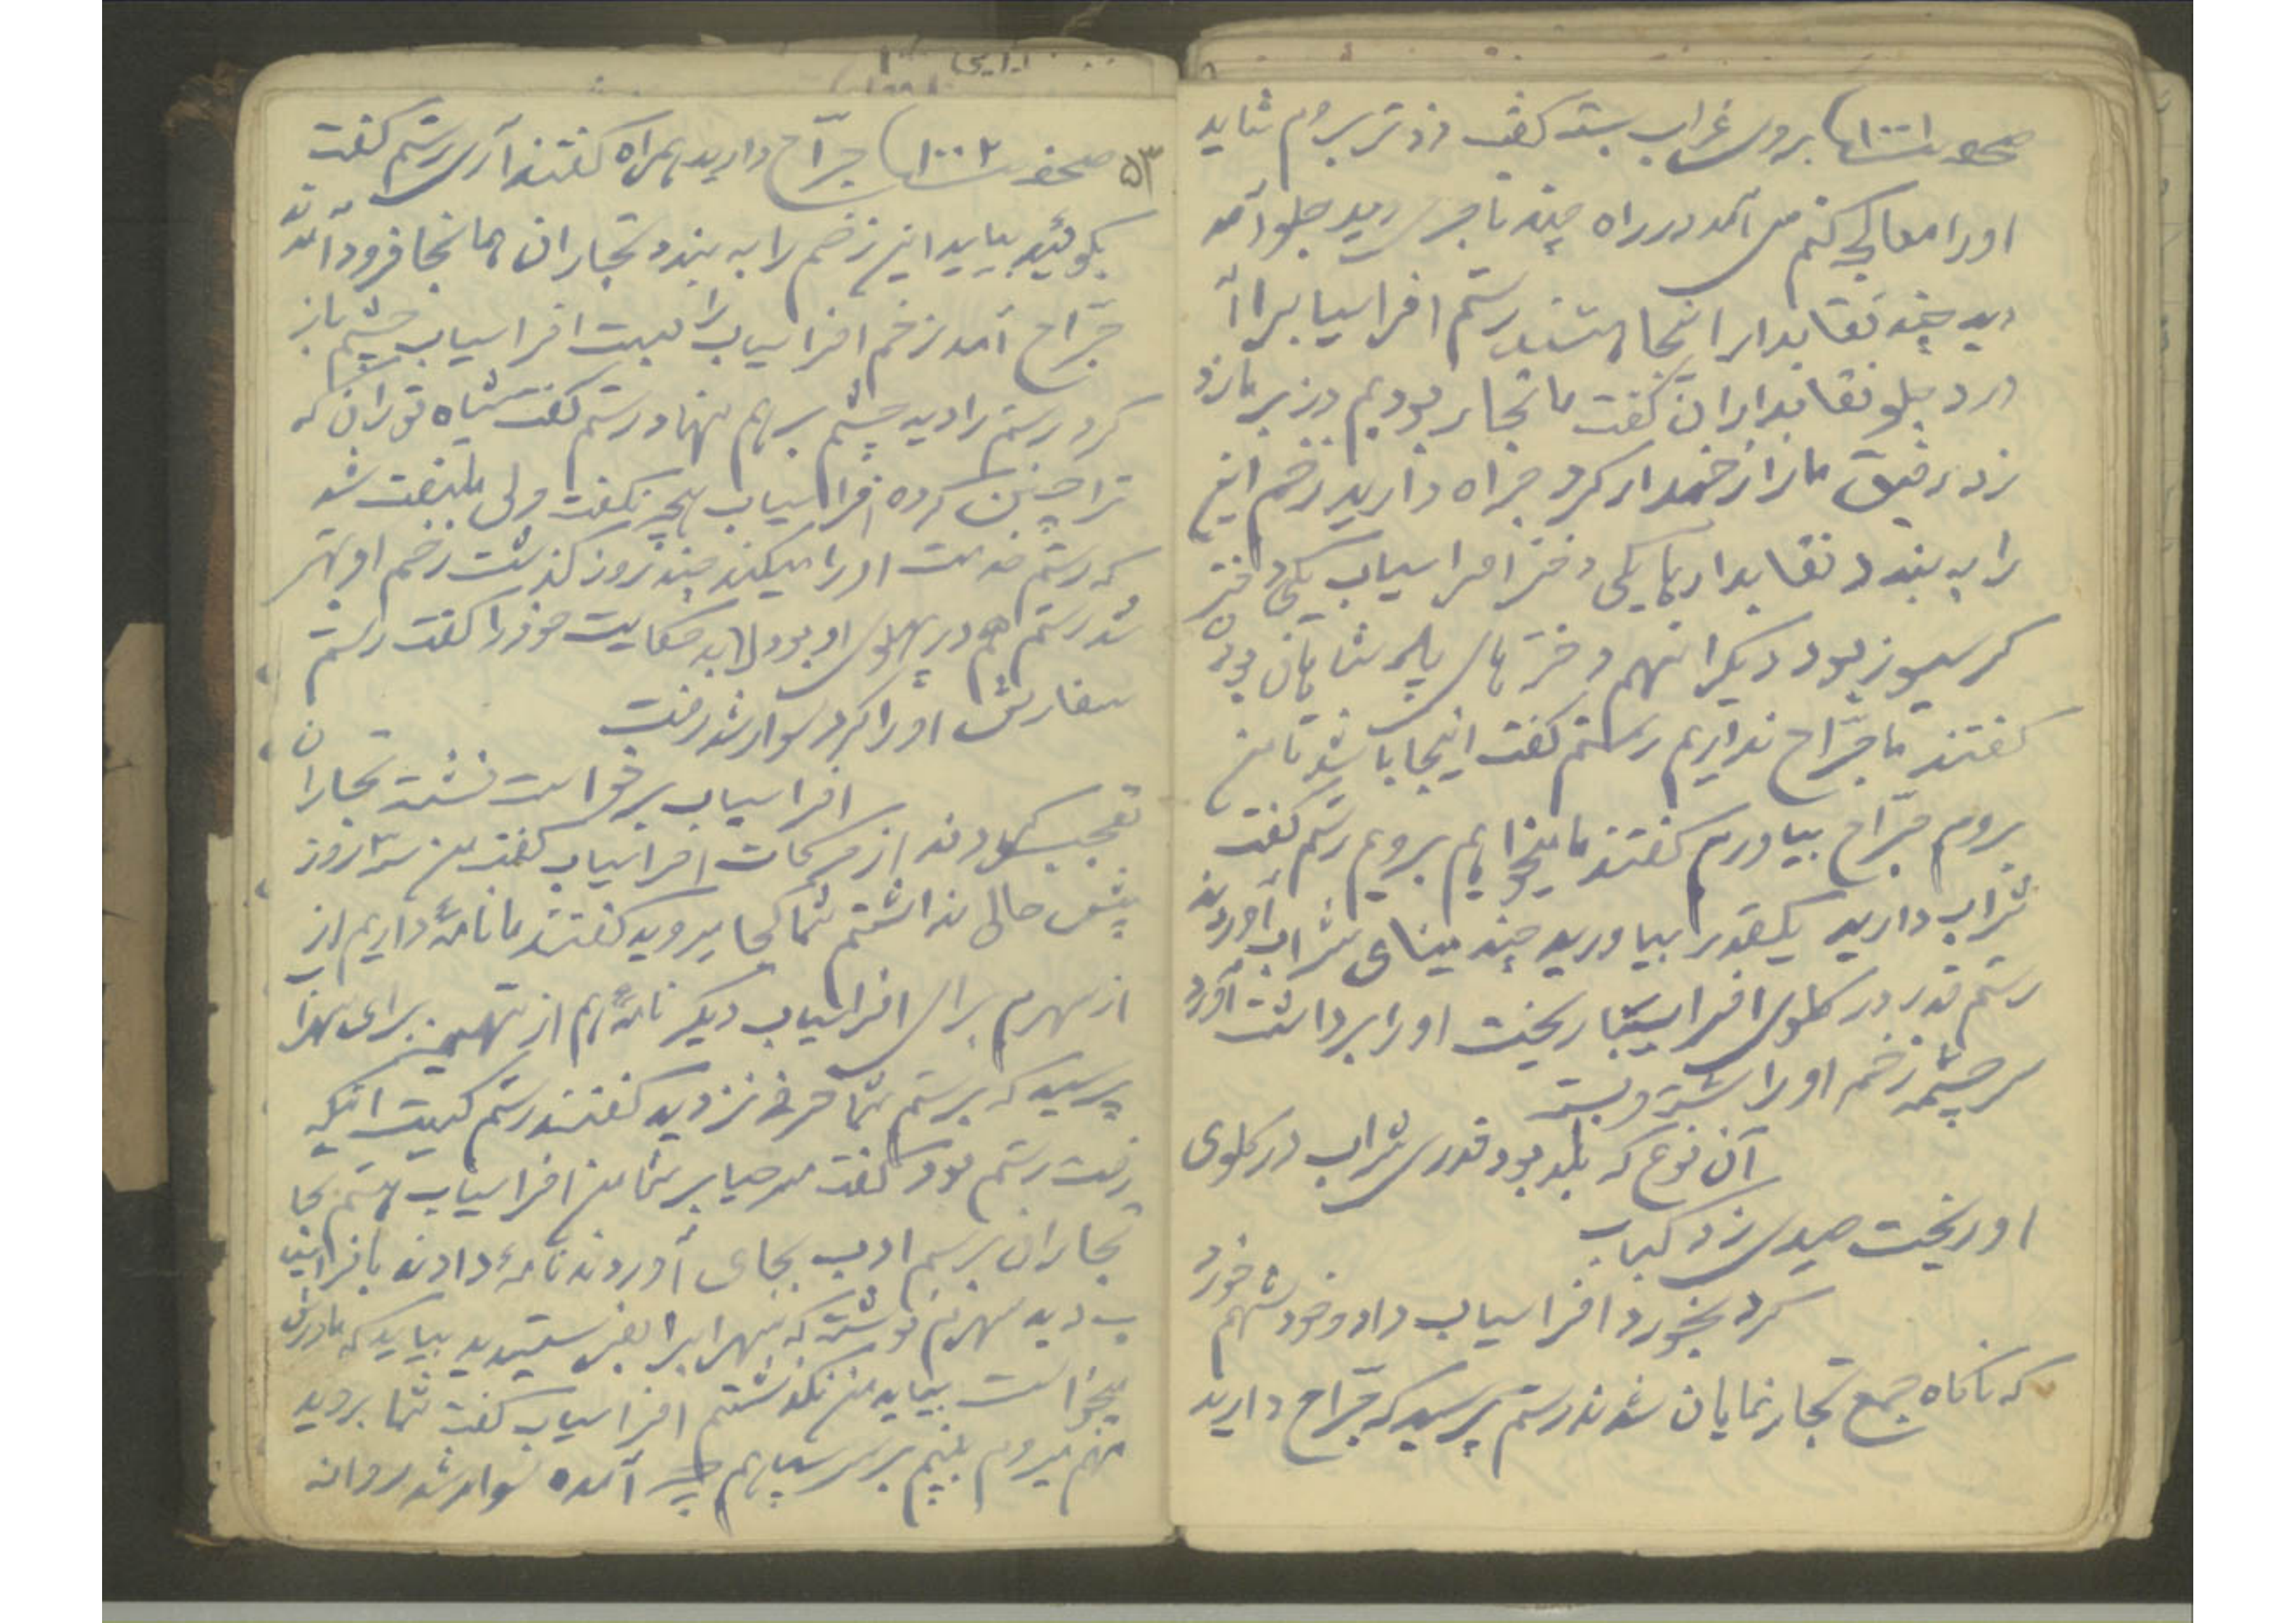 صحفه ۱۰۰۱ بروی غراب بست گفت زودتر بروم شاید
اورا معالجه کنم می آمد در راه چند تاجری دید جلو آمد
دید چند نقابدار اینجا هستند رستم افراسیابرا آ
ورد جلو نقابداران گفت ما تجار بودیم دزد بر ما زد
زد رفیق مارا زخمدار کرد جراه دارید زخم این
را به بندد نقابدارها یکی دختر افراسیاب یکی دختر
کرسیوز بود دیگرانهم دخترهای پادشاهان بود
گفتند ما جرّاح نداریم رستم گفت اینجا باشد تا من
بروم جرّاح بیاورم گفتند ما میخواهیم برویم رستم گفت
شراب دارید یکقدر بیاورید چند مینای شراب آوردند
رستم قدر در گلوی افراسیاب ریخت اورا برداشت آورد
سر چشمه زخم اورا شست و بست
آن نوع که بلد بود قدری شراب در گلوی
او ریخت صیدی زد کباب
کرد بخورد افراسیاب داد و خودشهم خورد
که ناگاه جمع تجار نمایان شدند رستم پرسید که جرّاح دارید
۵۳ صحفه ۱۰۰۲ جرّاح دارید همراه گفتند آری رستم گفت
بگوئید بیاید این زخم را به بندد تجاران همانجا فرود آمدند
جرّاح آمد زخم افراسیاب را ببست افراسیاب چشم باز
کرد رستم را دید چشم برهم نهاد رستم گفت شاه توران که
ترا چنین کرده افراسیاب هیچ نگفت ولی ملتفت شد
که رستم خدمت اورا میکند چند روز گذشت زخم او بهتر
شد رستم هم در پهلوی او بود لابد حکایت خودرا گفت رستم
سفارش اورا کرد سوار شد رفت
افراسیاب برخواست نشست تجاران
تعجب کردند از حرکات افراسیاب گفت من سه روز
پیش حالی نداشتم شما کجا میروید گفتند ما نامهٔ داریم از
از سهرم برای افراسیاب دیگر نامهٔ هم از تهمینه برای سهرا
پرسید که برستم شما حرفی نزدید گفتند رستم کیست اینکه
رفت رستم بود گفت مرحبا بر شما من افراسیاب هستم تجا
تجاران برسم ادب بجای آوردند نامهٔ دادند بافراسیا
ب دید سهرم نوشته که سهرابرا بفرستید بیاید که مادرش
میخواست بیاید من نگذاشتم افراسیاب گفت شما بروید
منهم میروم ببینم بر سر سپاهم چه آمده سوار شد روانه